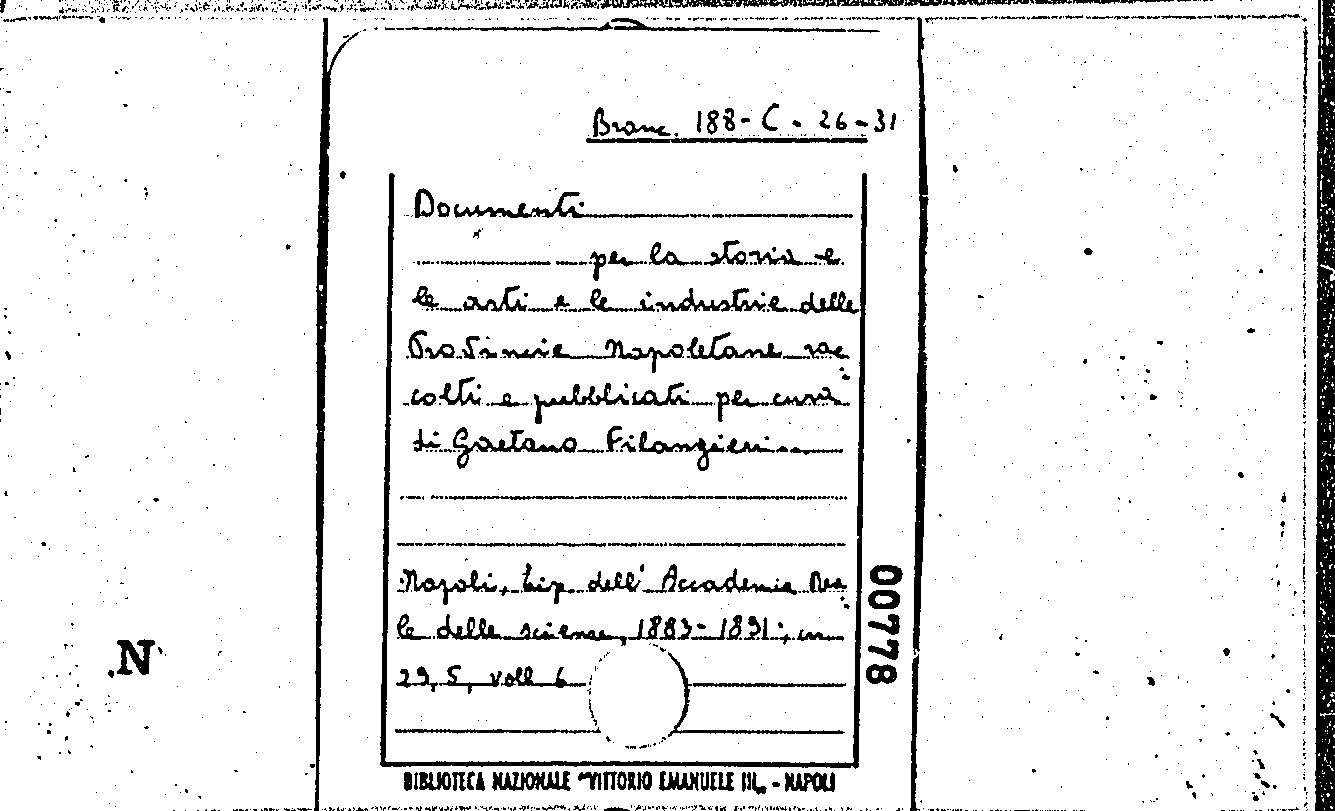 Branc. 188-C-26-31
Documenti
per la storia e
le arti e le industrie delle
Provincie Napoletane rac
colti e pubblicati per cura
di Gaetano Filangieri
Napoli, tip. dell'Accademia Rea
le delle scienze, 1883-1891; cm
29,5, voll 6
00778
N
BIBLIOTECA NAZIONALE "VITTORIO EMANUELE III„ - NAPOLI